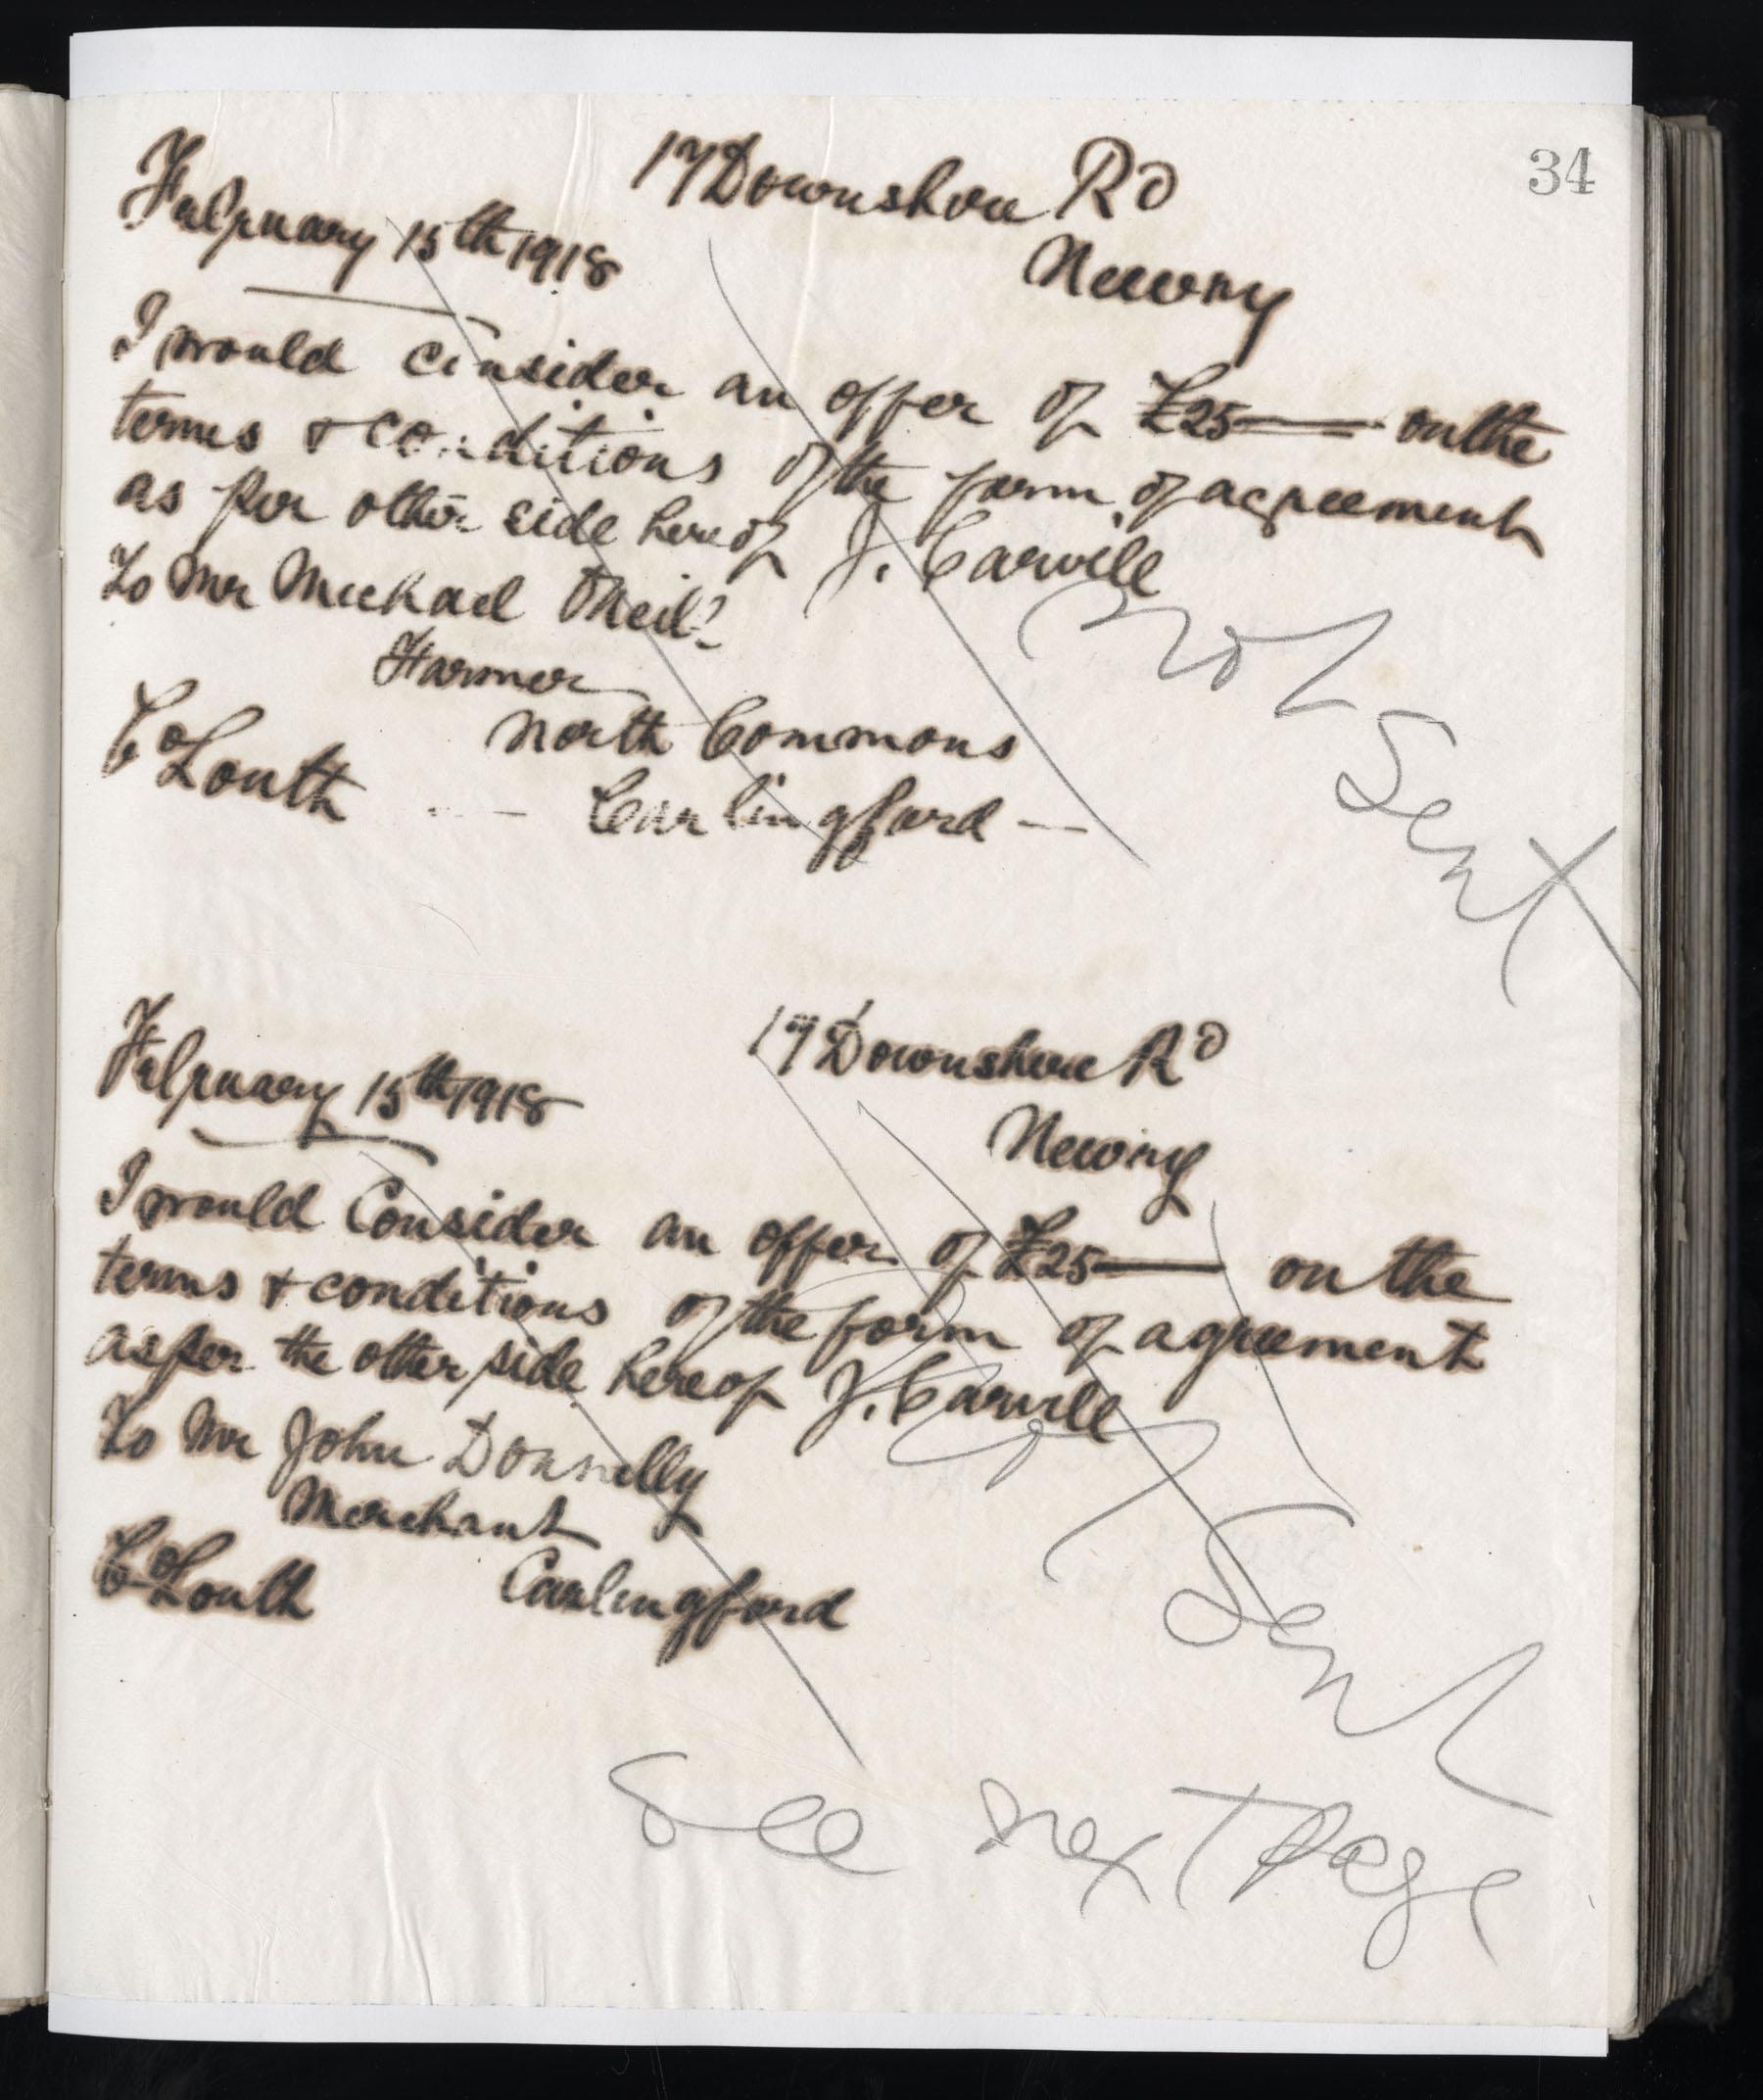 34
17 Downshire Rd
February 15th 1918
Newry
I would consider an offer of £25 — on the
terms & conditions of the form of agreement
as per other side hereof J. Carvill
To Mr Michael O'Neill
Farmer
North Commons
Co Louth - - Carlingford —
Not Sent
17 Downshire Rd
February 15th 1918
Newry
I would Consider an offer of £25 — on the
terms & conditions of the form of agreement
as per the other side hereof J. Carvill
To Mr John Donnelly
Merchant
Co Louth Carlingford
Not Sent
See next Page